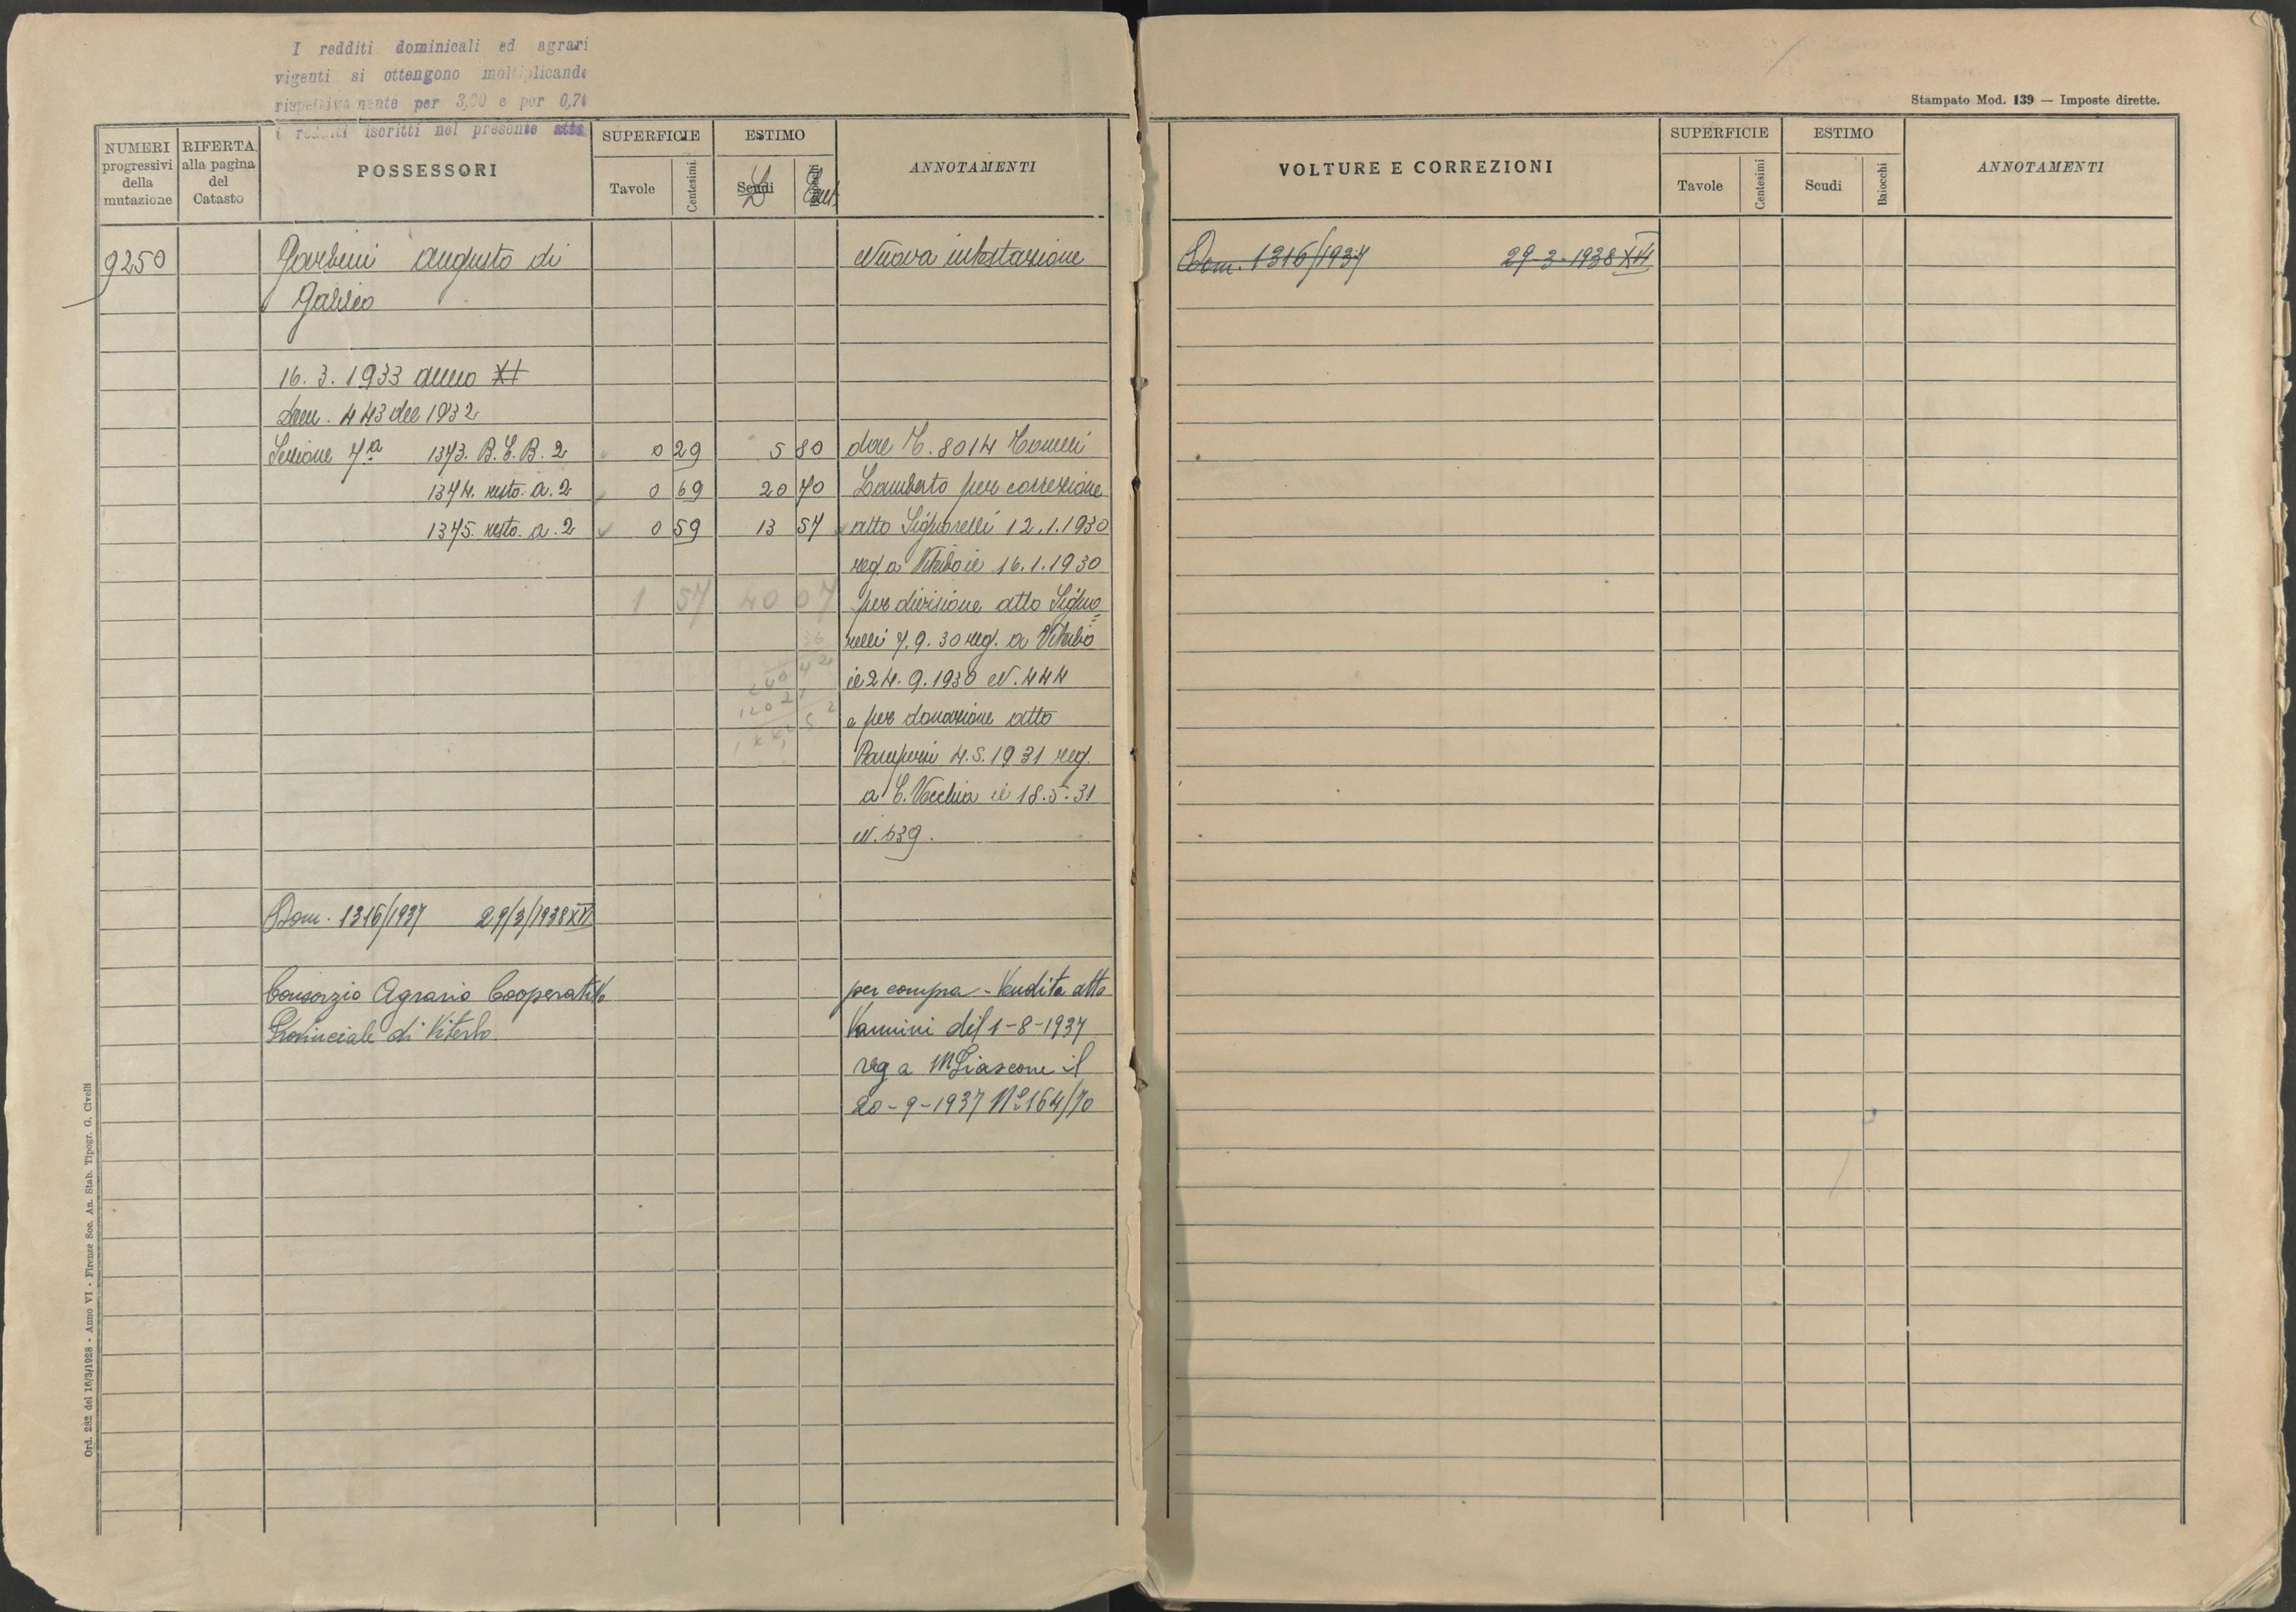 I redditi dominicali ed agrari
vigenti si ottengono moltiplicando
rispettivamente per 3,00 e per 0,70
i redditi iscritti nel presente atto
Stampato Mod. 139 — Imposte dirette.
NUMERI progressivi della mutazione
RIFERTA alla pagina del Catasto
POSSESSORI
SUPERFICIE
Tavole Centesimi
ESTIMO
Scudi
L Cent.
ANNOTAMENTI
VOLTURE E CORREZIONI
SUPERFICIE
Tavole Centesimi
ESTIMO
Scudi Baiocchi
ANNOTAMENTI
9250 Garbini Augusto di Nuova intestazione
Galileo
16. 3. 1933 anno XI
Dom. 443 del 1932
Sezione 7a 1373. B.C.B. 2 0 29 5 80 dal N. 8014 Tonelli
1374. resto. a. 2 0 69 20 70 Lamberto per correzione
1375. resto. a. 2 0 59 13 57 atto Signorelli 12.1.1930
reg. a Viterbo il 16.1.1930
1 57 40 07 per divisione atto Signo=
relli 7.9.30 reg. a Viterbo
il 24.9.1930 N. 444
e per donazione atto
4.5.1931 reg.
a C. Vecchia il 18.5.31
N. 539.
Dom. 1316/1937 29/3/1938 XVI
Consorzio Agrario Cooperativo per compra-Vendita atto
Provinciale di Viterbo Vannini del 1-8-1937
reg a MFiascone il
20-9-1937 No 164/70
Dom. 1316/1937 29-3-1938 XVI
Ord. 282 del 16/3/1928 - Anno VI - Firenze Soc. An. Stab. Tipogr. G. Civelli